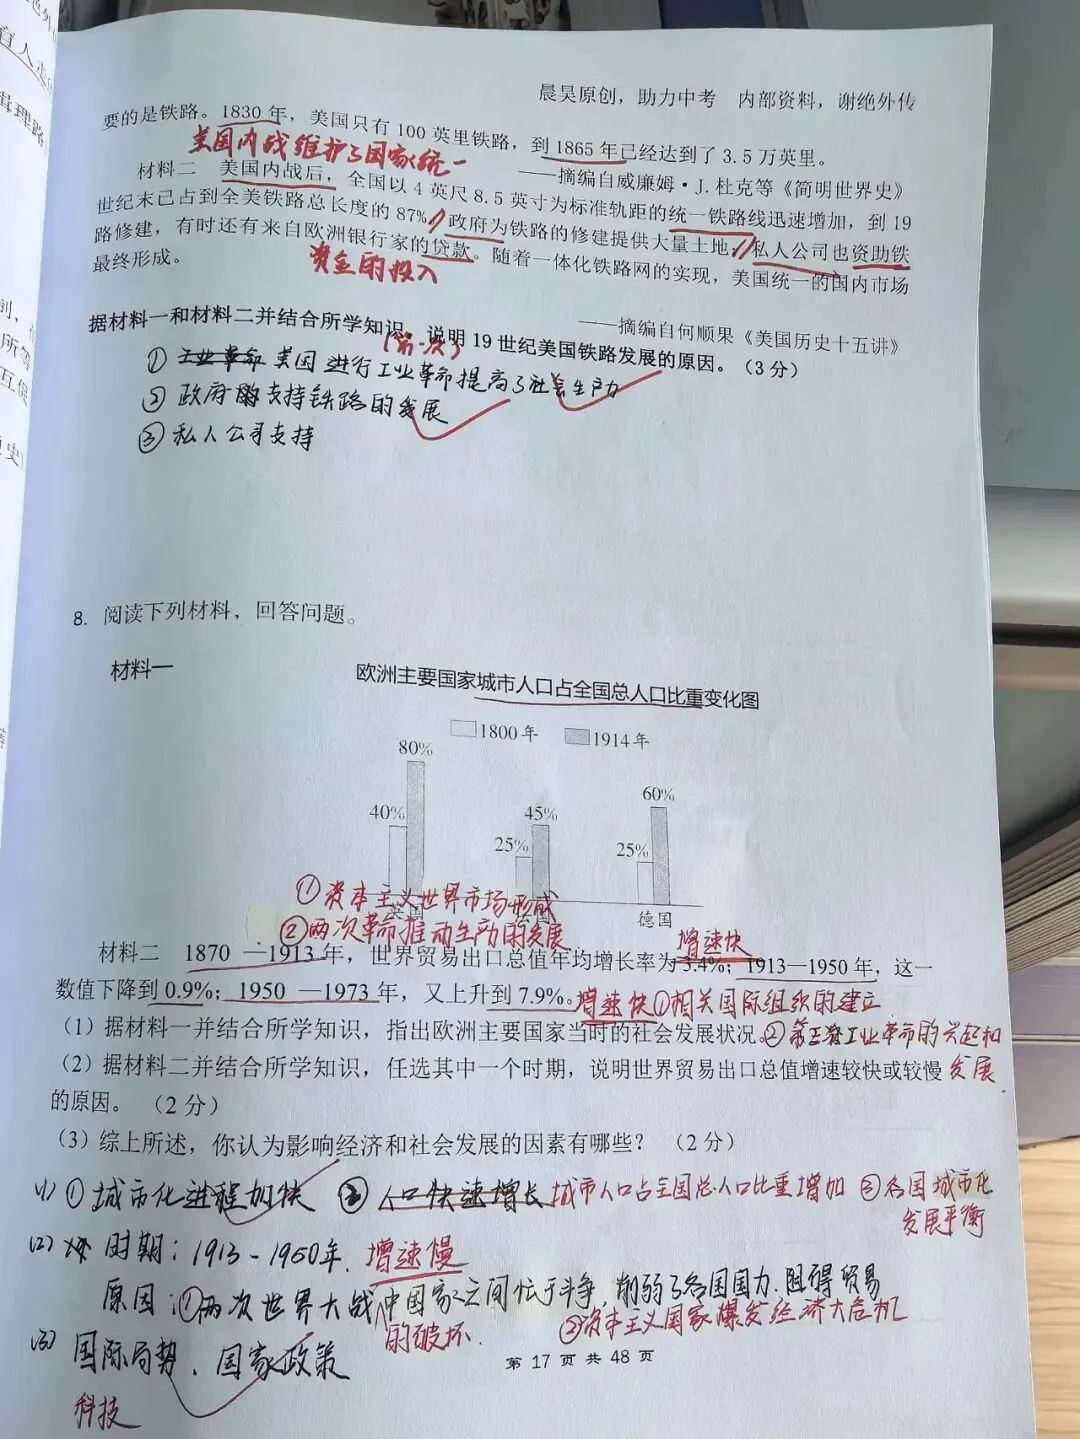 晨昊原创，助力中考　内部资料，谢绝外传
要的是铁路。1830 年，美国只有 100 英里铁路，到 1865 年已经达到了 3.5 万英里。
美国内战维护了国家统一
——摘编自威廉姆·J.杜克等《简明世界史》
材料二　美国内战后，全国以 4 英尺 8.5 英寸为标准轨距的统一铁路线迅速增加，到 19
世纪末已占到全美铁路总长度的 87%。政府为铁路的修建提供大量土地；私人公司也资助铁
路修建，有时还有来自欧洲银行家的贷款。随着一体化铁路网的实现，美国统一的国内市场
最终形成。
资金的投入
——摘编自何顺果《美国历史十五讲》
据材料一和材料二并结合所学知识，说明 19 世纪美国铁路发展的原因。（3 分）
(第一次)
① 工业革命 美国进行工业革命提高了社会生产力
② 政府 支持铁路的发展
③ 私人公司支持
8. 阅读下列材料，回答问题。
材料一
欧洲主要国家城市人口占全国总人口比重变化图
1800 年 1914 年
80%
60%
40% 45%
25% 25%
英国 德国
① 资本主义世界市场形成
② 两次革命推动生产力的发展
增速快
材料二　1870 —1913 年，世界贸易出口总值年均增长率为 3.4%；1913—1950 年，这一
数值下降到 0.9%；1950 —1973 年，又上升到 7.9%。
增速快 ①相关国际组织的建立
（1）据材料一并结合所学知识，指出欧洲主要国家当时的社会发展状况。
②第三次工业革命的兴起和
发展
（2）据材料二并结合所学知识，任选其中一个时期，说明世界贸易出口总值增速较快或较慢
的原因。（2 分）
（3）综上所述，你认为影响经济和社会发展的因素有哪些？（2 分）
(1) ① 城市化进程加快 ② 人口快速增长 城市人口占全国总人口比重增加 ③各国城市化
发展平衡
(2) 时期：1913-1950年. 增速慢
原因：①两次世界大战 中国家之间忙于斗争，削弱了各国国力，阻碍贸易
的破坏. ②资本主义国家爆发经济大危机
(3) 国际局势、国家政策
科技
第 17 页 共 48 页